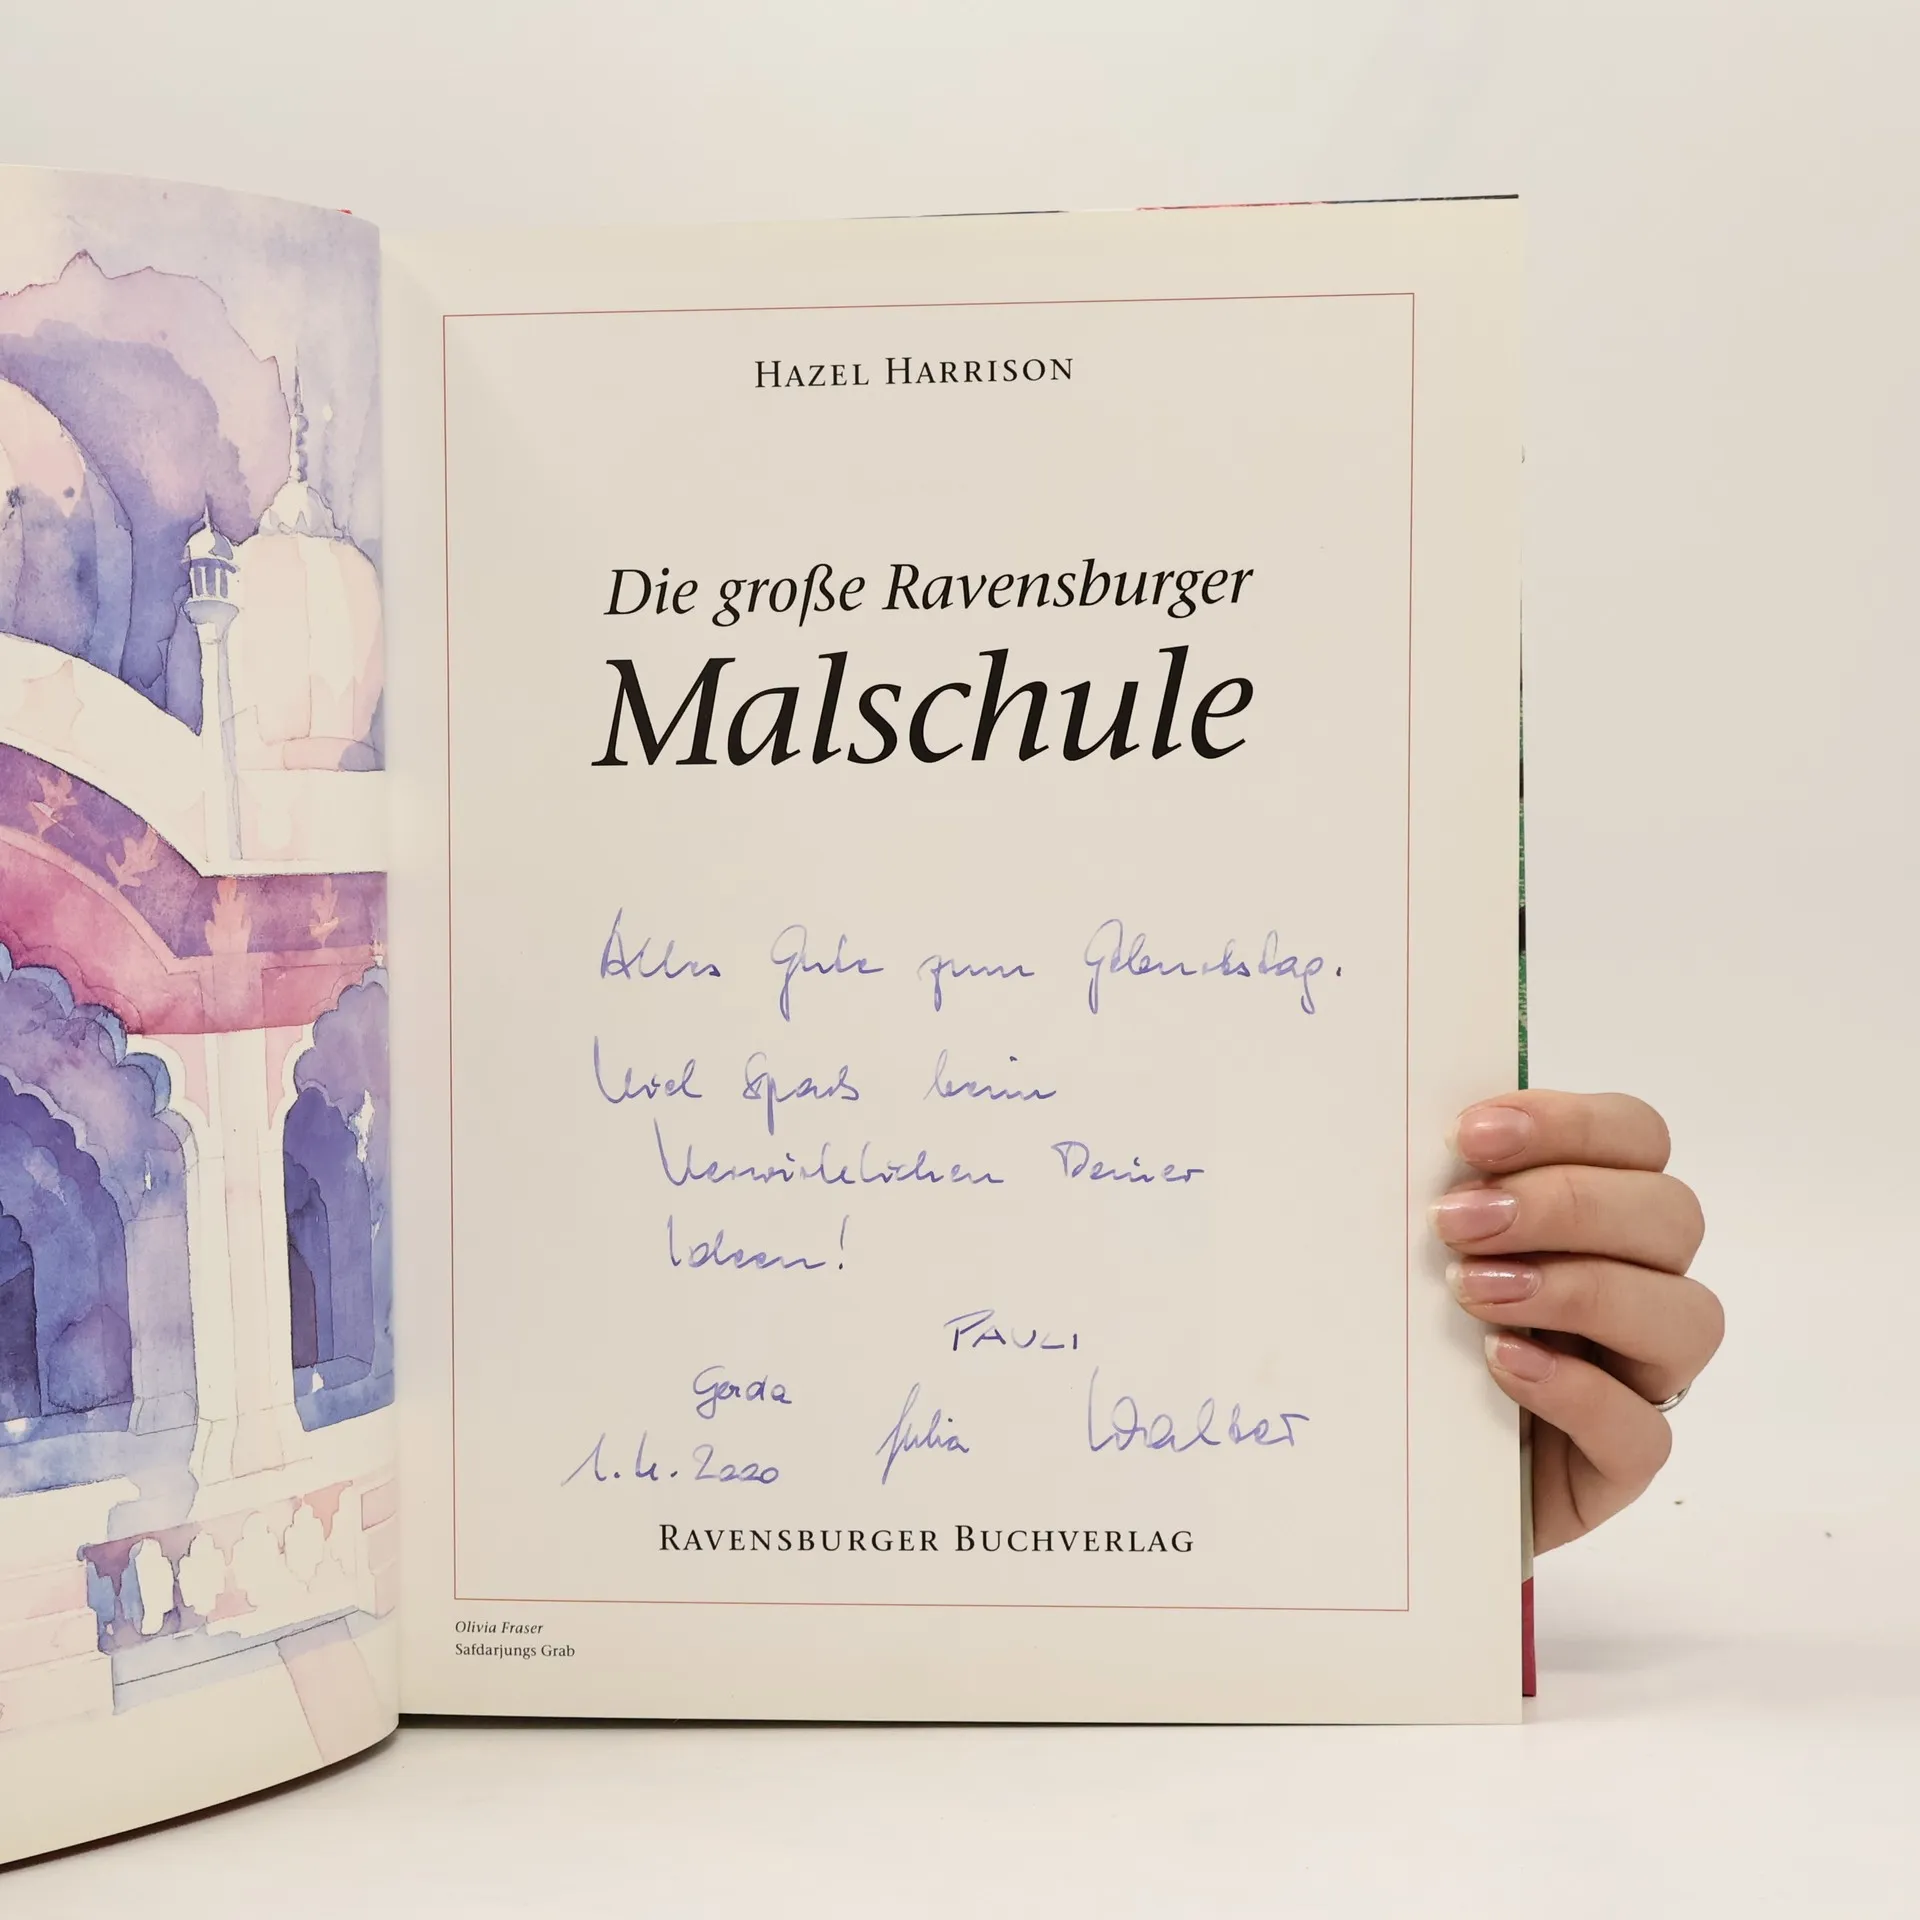 HAZEL HARRISON
Die große Ravensburger
Malschule
Alles Gute zum Geburtstag.
Viel Spass beim
Verwirklichen Deiner
Ideen!
PAULI
Gerda
Julia
Walter
1.4.2000
RAVENSBURGER BUCHVERLAG
Olivia Fraser
Safdarjungs Grab